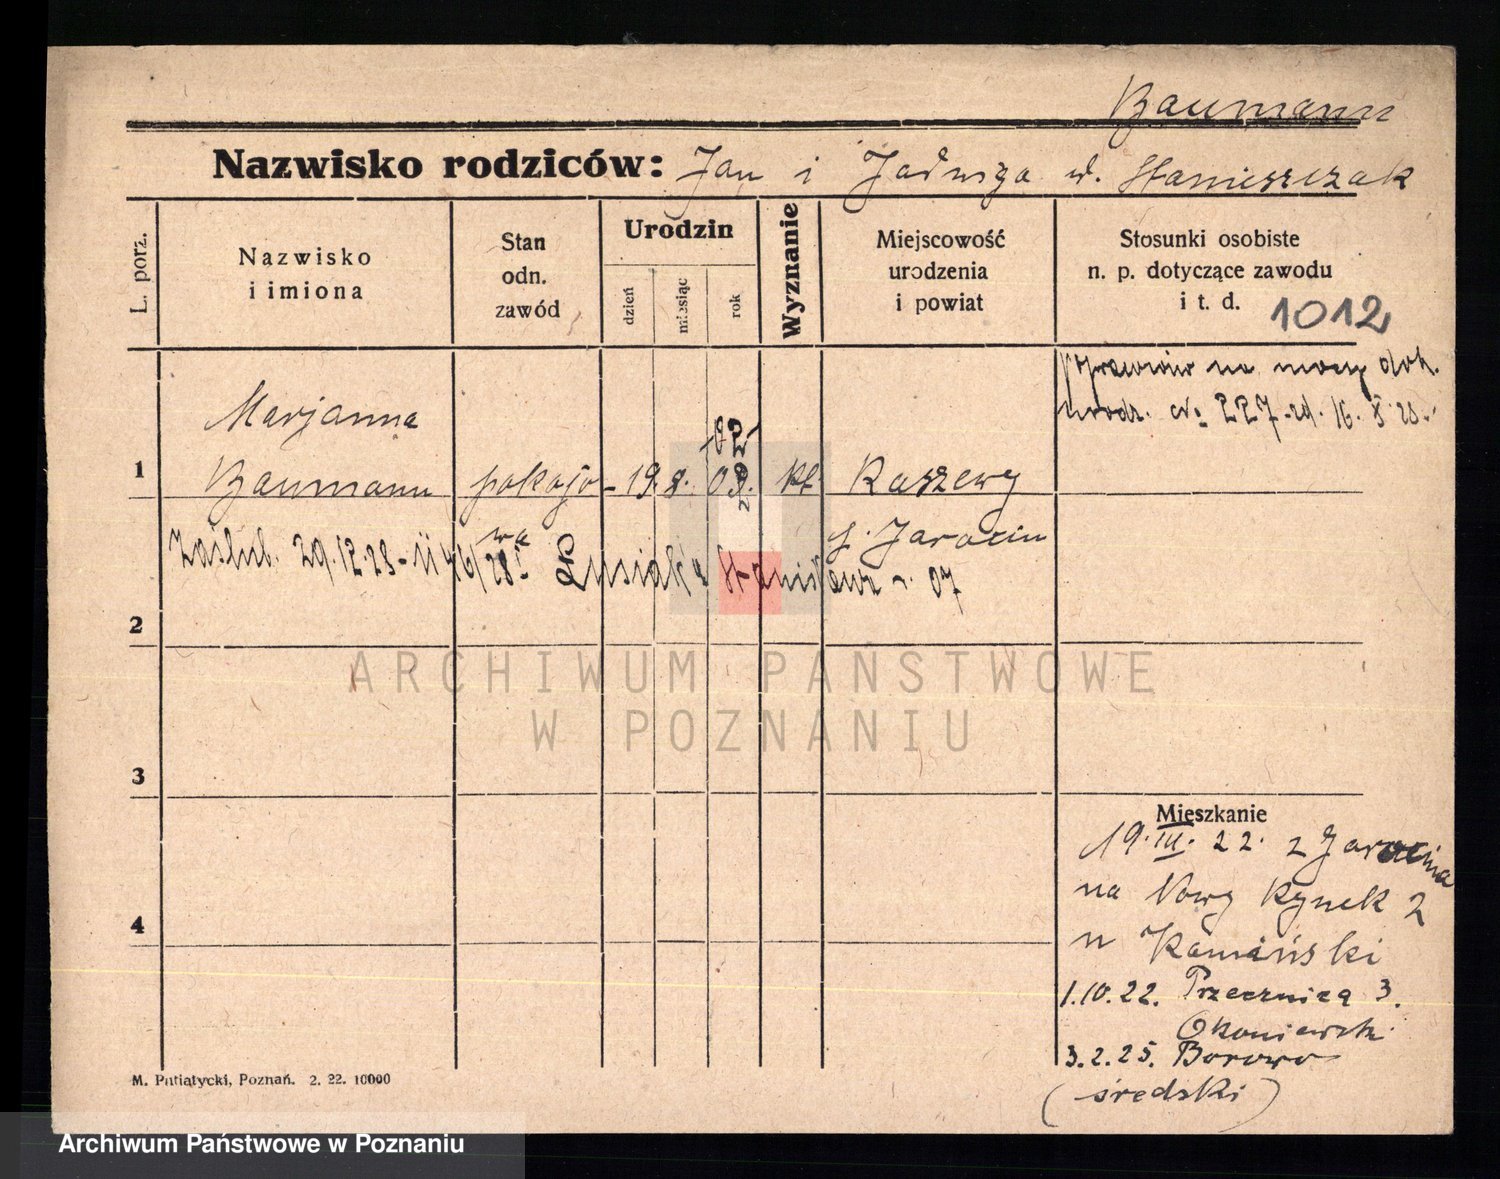 Baumann
Nazwisko rodziców: Jan i Jadwiga d. Stanieszczak
L. porz.
Nazwisko
i imiona
Stan
odn.
zawód
Urodzin
dzień
miesiąc
rok
Wyznanie
Miejscowość
urodzenia
i powiat
Stosunki osobiste
n. p. dotyczące zawodu
i t. d. 1012
na mocy dok.
urodz. nr 227 zd. 16. 8 28.
Marjanna
1 Baumann pokojo- 19. 8. 09. kt. Raszewy
wa p. Jarocin
zaślub. 29.12.28 - 1146/28 z Stanisław r. 07
2
3
4
Mieszkanie
19. III. 22. z Jarocina
na Nowy Rynek 2
1.10.22. Przecznica 3.
3.2.25. Borowo
(średski)
M. Putiatycki, Poznań. 2. 22. 10000
ARCHIWUM PAŃSTWOWE
W POZNANIU
Archiwum Państwowe w Poznaniu